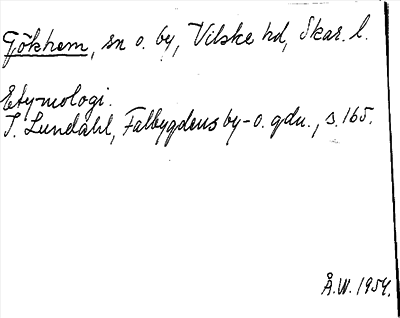 Gökhem, sn o. by, Vilske hd, Skar. l.
Etymologi.
I. Lundahl, Falbygdens by- o. gdn., s. 165.
Å.W. 1954.